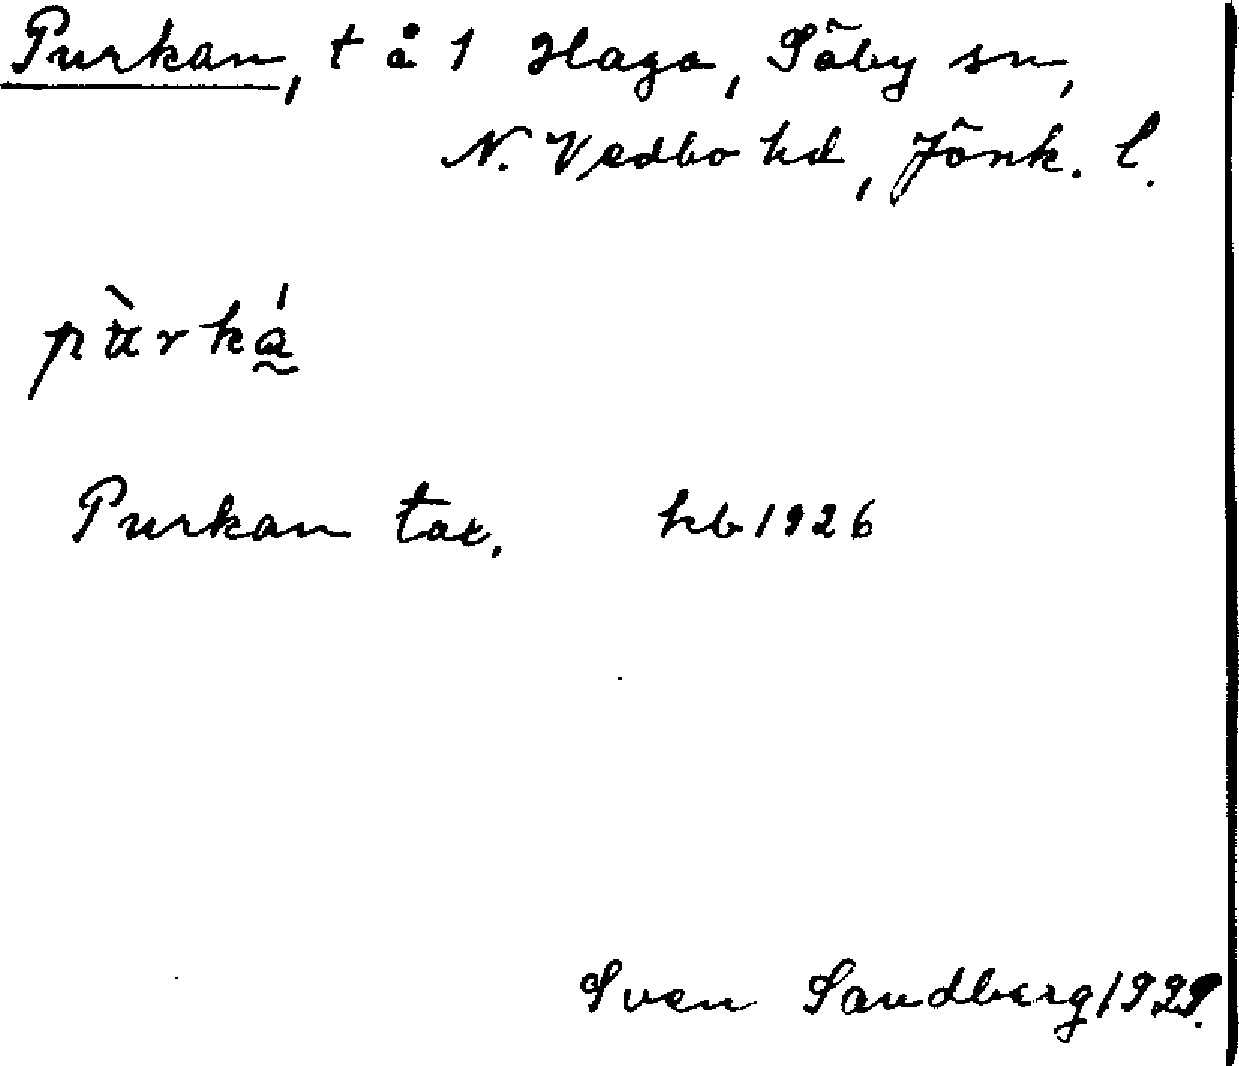 Purkan, t å 1 Haga, Säby sn,
N. Vedbo hd, Jönk. l.
pùrká̰
Purkan tax. hb 1926
Sven Sandberg 1929.